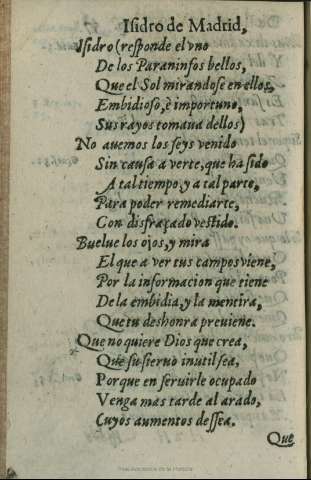 Isidro de Madrid,
Isidro (responde el vno
De los Paraninfos bellos,
Que el Sol mirandose en ellos,
Embidioso, è importuno,
Sus rayos tomaua dellos)
No auemos los seys venido
Sin causa a verte, que ha sido
A tal tiempo, y a tal parte,
Para poder remediarte,
Con disfraçado vestido.
Buelue los ojos, y mira
El que a ver tus campos viene,
Por la informacion que tiene
De la embidia, y la mentira,
Que tu deshonra preuiene.
Que no quiere Dios que crea,
Que su sieruo inutil sea,
Porque en seruirle ocupado
Venga mas tarde al arado,
Cuyos aumentos dessea.
Que
Real Academia de la Historia